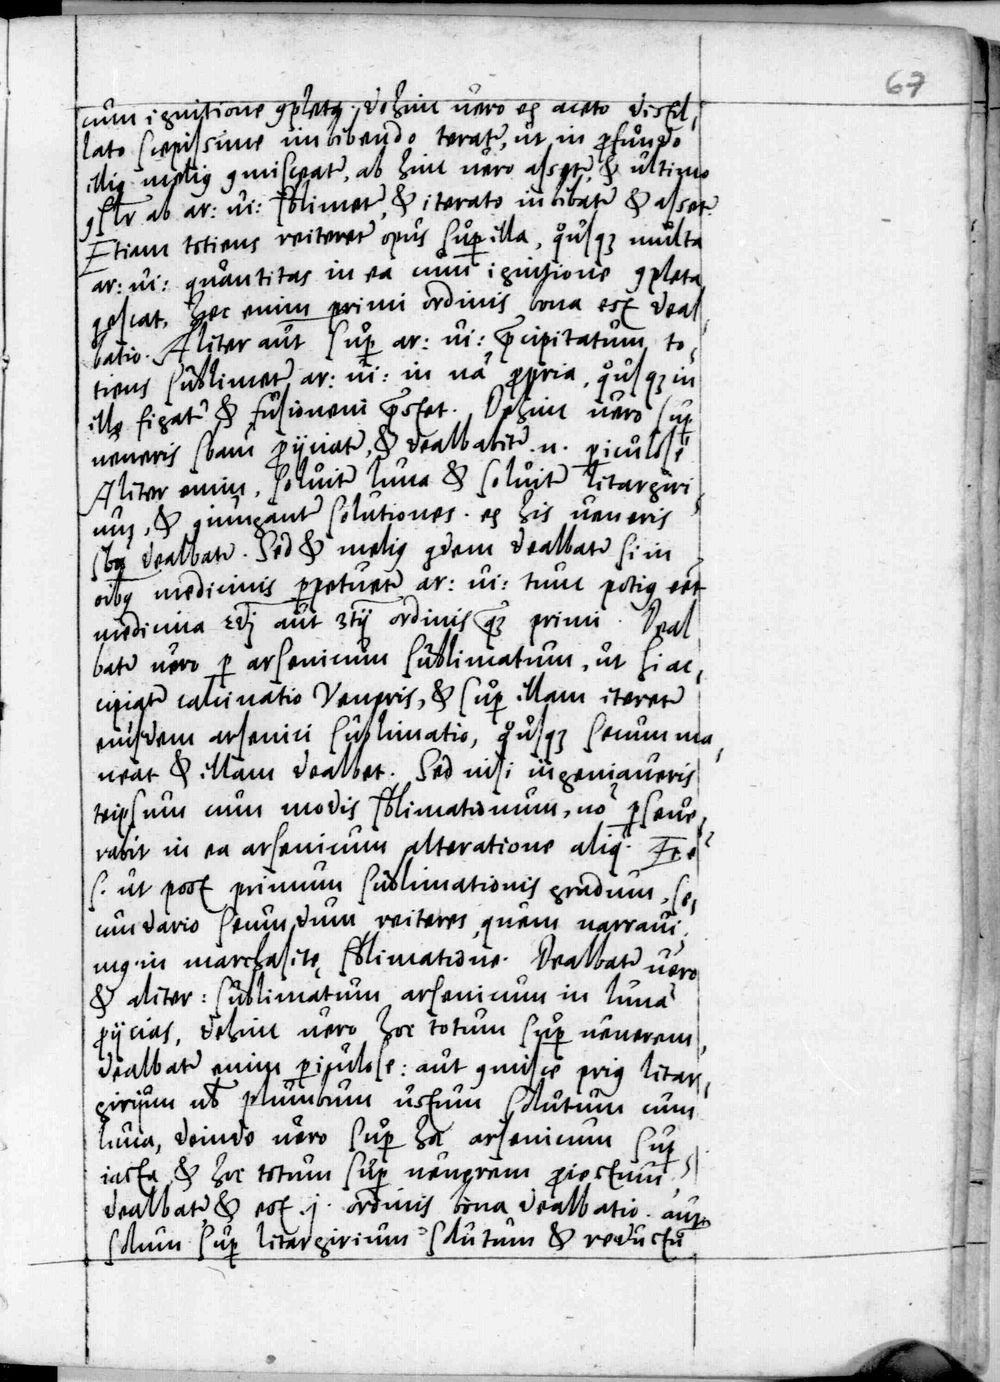 67
cum ignitione ꝯpleta. dehinc uero ex aceto distil,
lato sæpissime imbibendo teratͬ, ut in ꝓfundo
illiꝰ meliꝰ ꝯmisceatͬ, ab hinc uero assetͬ, & ultimo
ab ar: ui: sblimetͬ, & iterato imbibatͬ & assetͬ.
Etiam totiens reiteretͬ opus suꝑ illa, qͦusqꝫ multa
ar: ui: quantitas in ea cum ignitione ꝯpleta
qescat. hec enim primi ordinis bona est deal
batio. Aliter aut suꝑ ar: ui: p̄cipitatum to,
tiens sublimetͬ ar: ui: in nā ꝓpria, qͦusqꝫ in
illo figatͬ & fusionem p̄stet. Dehinc uero suꝑ
ueneris sbam ꝓijciatͬ, & dealbabitͬ .n. ꝑiculose
Aliter enim, soluitͬ luna & soluitͬ litargiri
uꝫ, & ꝯiungantͬ solutiones. ex his ueneris
sba dealbatͬ. Sed & meliꝰ qdem dealbatͬ si in
oibꝰ medicinis ꝑpetuetͬ ar: ui: tunc potiꝰ eēt
medicina 2dj aut 3tij ordinis qꝫ primi. Deal
batͬ uero ꝑ arsenicum sublimatum, ut si ac,
cipiatͬ calcinatio Veneris, & suꝑ illam iteretͬ
eiusdem arsenici sublimatio, qͦusqꝫ secum ma,
neat & illam dealbet. Sed nisi ingeniaueris
teipsum cum modis sblimationum, nō ꝑseue,
rabit in ea arsenicum alteratione aliqͣ.
s. ut post primum sublimationis gradum, se,
cundario secundum reiteres, quem narraui,
mꝰ in marchasitę sblimatione. Dealbatͬ uero
& aliter: sublimatum arsenicum in luna
ꝓijcias, dehinc uero hoc totum suꝑ uenerem,
dealbatͬ enim ꝑiculose: aut ꝯmisce priꝰ litar,
girijum ul plumbum ustum solutum cum
luna, deinde uero suꝑ hęc arsenicum suꝑ
iacta & hoc totum suꝑ uenerem proiectum,
dealbatͬ & est .j. ordinis bona dealbatio. aut
solum suꝑ litargirium solutum & reductū